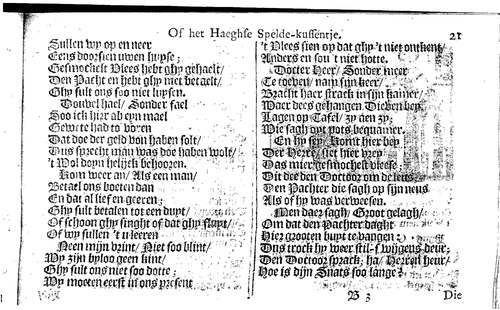 Of het Haeghse Spelde-kussentje. 21
Sullen wy op en neer
Eens doorsien uwen huyse;
Gesmockelt Vlees hebt ghy gehaelt/
Den Pacht en hebt ghy niet betaelt/
Ghy sult ons soo niet suysen.
Douvel hael/ Sonder fael
Soo ick hier ab eyn mael
Gewete had to voren
Dat doe der geld von haben solt/
Duts sprecht man was doe haben wolt/
't Wol doyn helijck behooren.
Kom weer an/ Als een man/
Betael ons boeten dan
En dat al lief en geeren;
Ghy sult betalen tot een duyt/
Of schoon ghy singht of dat ghy fluyt/
Of wy sullen 't u leeren
Neen mijn vrint/ Niet soo blint/
Wy zijn byloo geen kint/
Ghy sult ons niet soo dotte;
Wy moeten eerst in ons present
't Vlees sien op dat ghy 't niet ontkent/
Anders en son 't niet hotte.
Docter Heer/ Sonder meer
Te toeven/ nam zijn keer
Bracht haer strack in zijn kamer/
Maer dees gehangen Dieven bey
Lagen op Tafel/ zy aen zy;
Wie sagh oyt pots bequamer.
En hy sey/ Komt hier bey
Der Herts/ siet hier vrey
Das mier gesmockelt vleese;
Dit dee den Doctoor om de leus
Den Pachter die sagh op sijn neus
Als of hy was verweesen.
Men daer sagh/ Groot gelagh/
Om dat den Pachter daght
Hier grooten buyt te vangen:
Dus trock hy weer stil-swijgens deur;
Den Doctoor sprack; ha/ Herren heur/
Hoe is dijn Snats soo lange?
B 3 Die